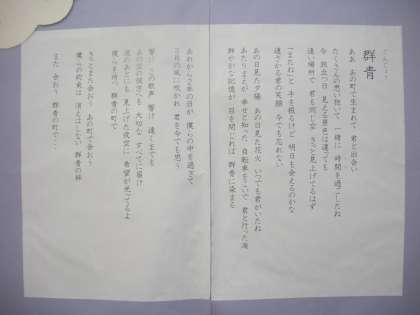 ぐんじょう
群青
ああ あの町で生まれて 君と出会い
たくさんの思い抱いて 一緒に時間を過ごしたね
今 旅立つ日 見える景色は違っても
遠い場所で 君も同じ空 きっと見上げてるはず
「またね」と 手を振るけど 明日も会えるのかな
遠ざかる君の笑顔 今でも忘れない
あの日見た夕陽 あの日見た花火 いつでも君がいたね
あたりまえが 幸せと知った 自転車をこいで 君と行った海
鮮やかな記憶が 目を閉じれば 群青に染まる
あれから2年の日が 僕らの中を過ぎて
3月の風に吹かれ 君を今でも思う
響け この歌声 響け 遠くまでも
あの空の彼方へも 大切な すべてに届け
涙のあとにも 見上げた夜空に 希望が光ってるよ
僕らを待つ 群青の町で
きっとまた会おう あの町で会おう
僕らの約束は 消えはしない 群青の絆
また 会おう 群青の町で・・・